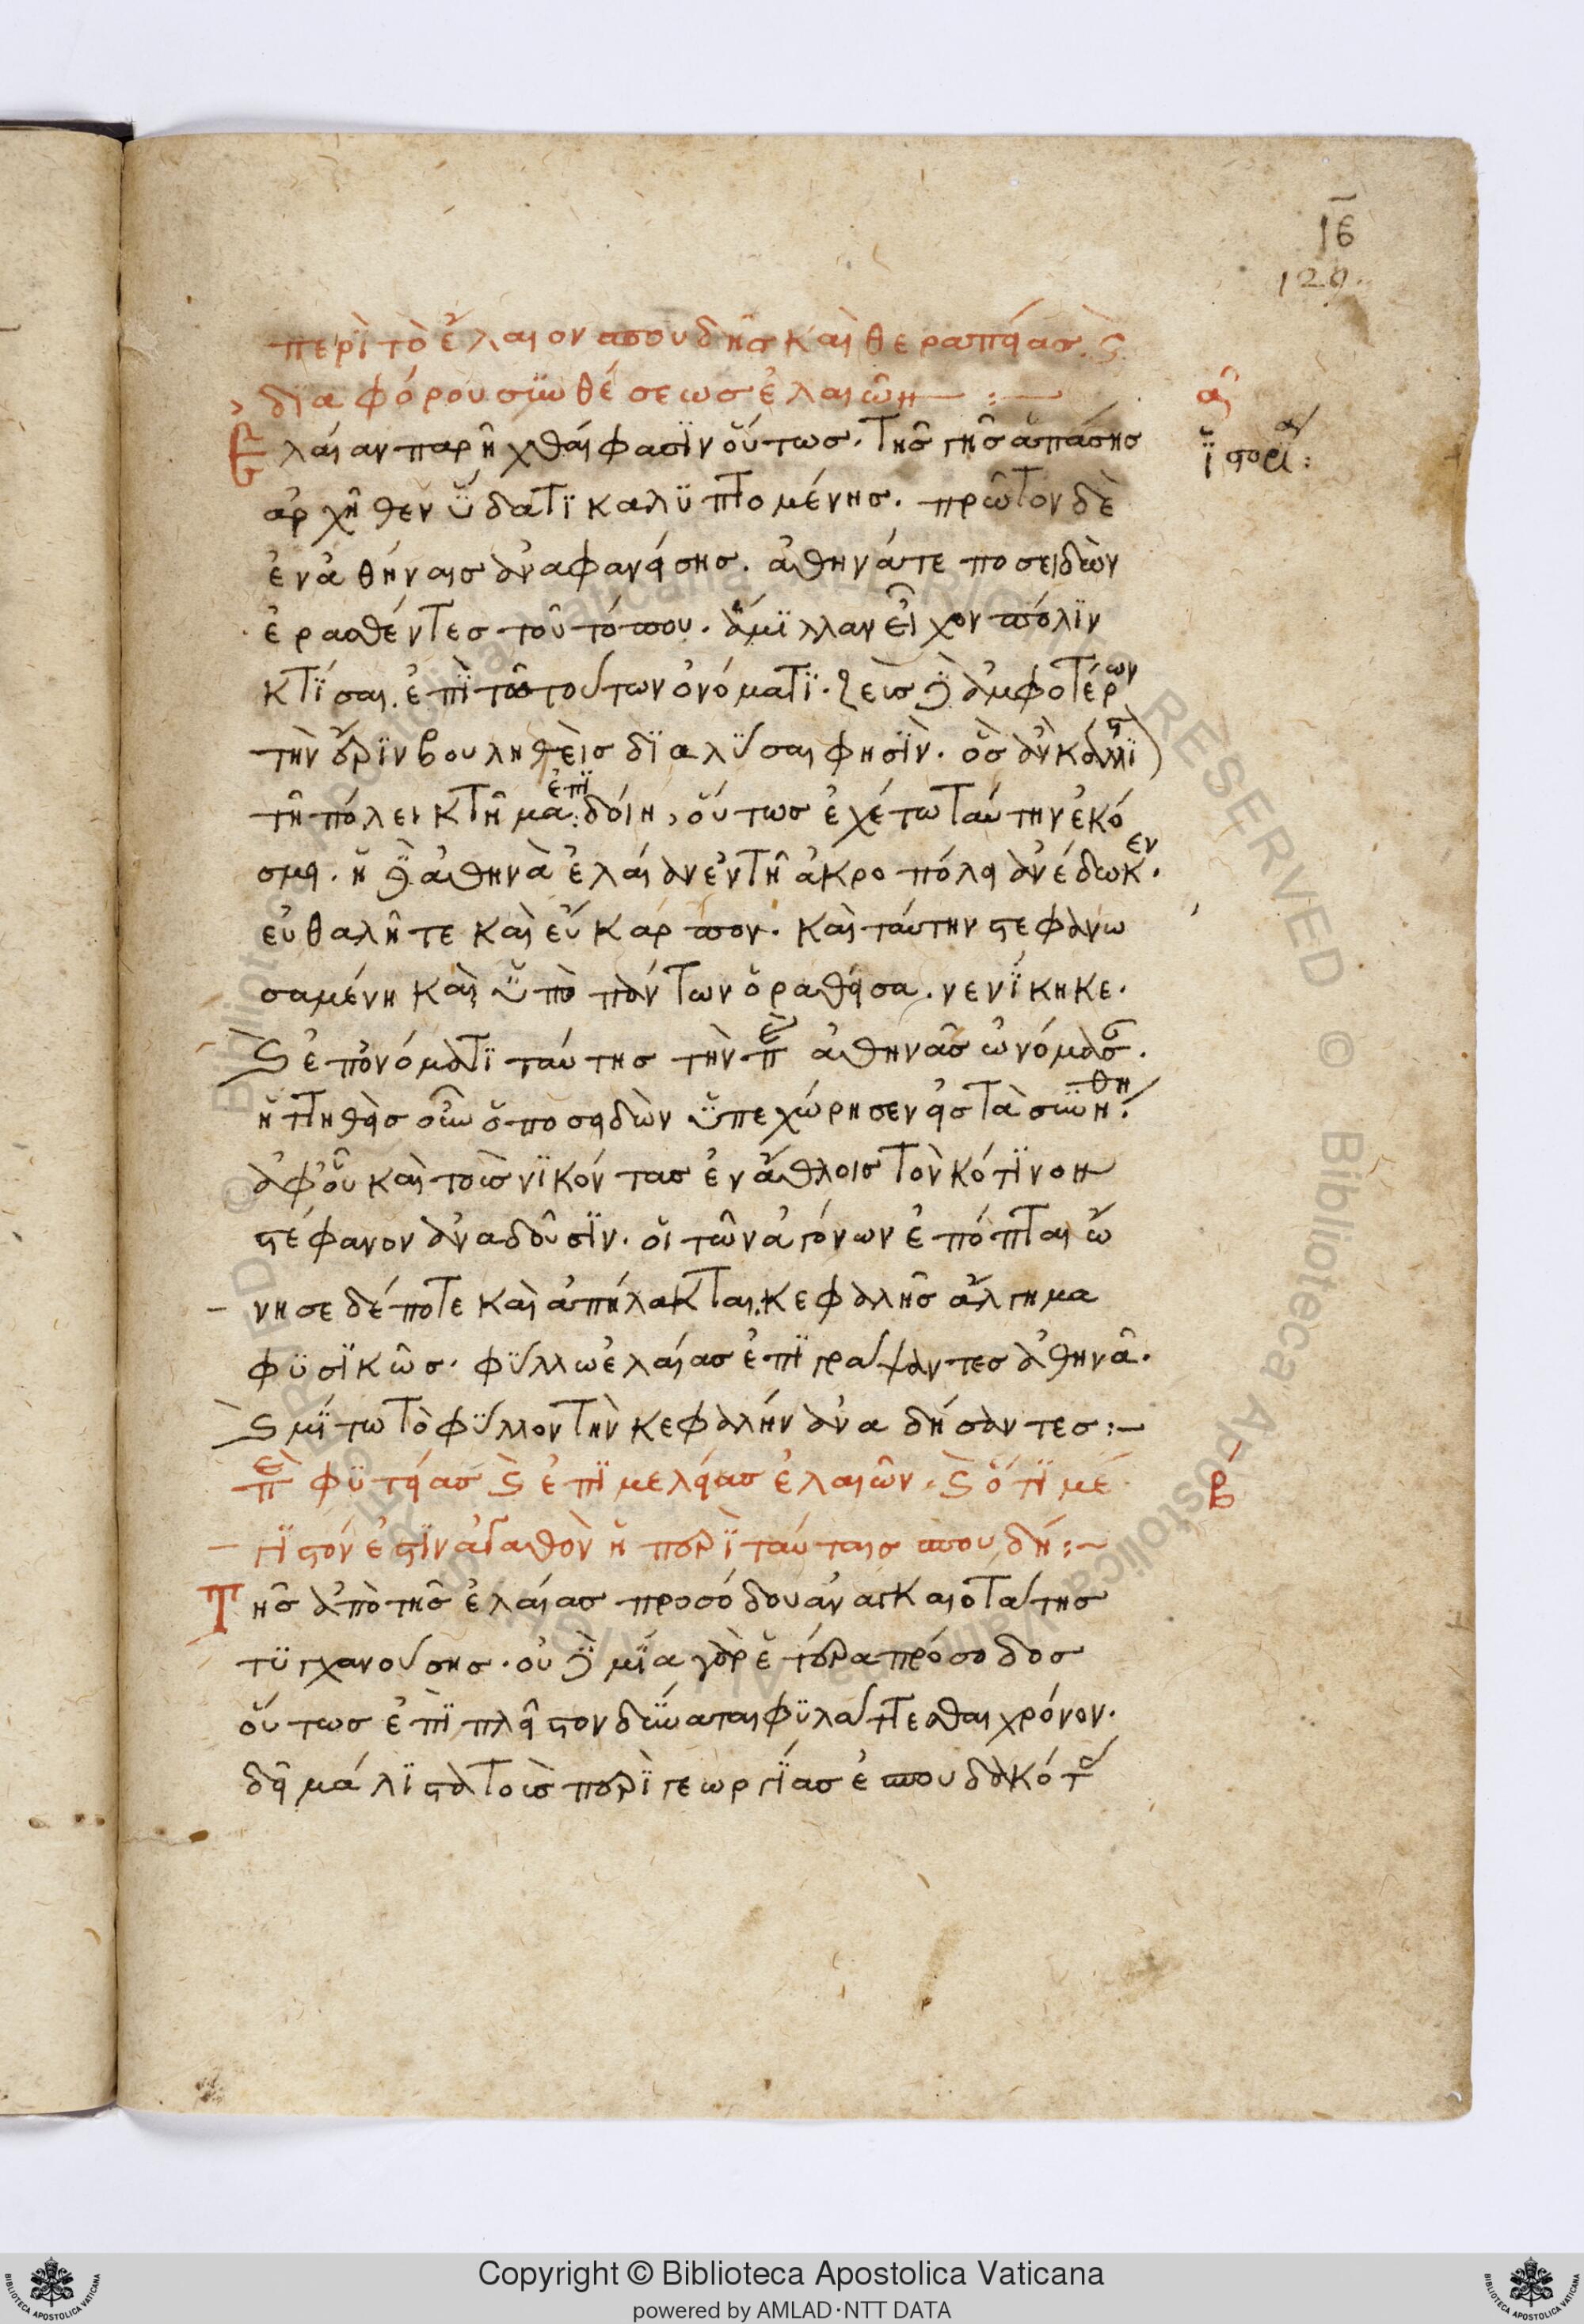 ιϛ
129.
περὶ τὸ ἔλαιον σπουδῆς καὶ θεραπείας. καὶ
διαφόρου συνθέσεως ἐλαιῶν :—
α
Ἐλαίαν παρῆχθαί φασὶν οὕτως. τῆς γῆς ἁπάσης
ἱστορία:
ἀρχῆθεν ὕδατι καλυπτομένης. πρῶτον δὲ
ἐν ἀθήναις ἀναφανείσης. ἀθηνά τε ποσειδῶν
ἐρασθέντες τοῦ τόπου. ἅμιλλαν εἶχον πόλιν
κτίσαι. ἐπὶ τῶ τούτων ὀνόματι. ζεὺς δὲ ἀμφοτέρων
τὴν ἔριν βουληθεὶς διαλύσαι φησὶν. ὃς ἂν κάλλιστον
τῆ πόλει κτῆμα ἐπιδοίη, οὕτως ἐχέτω ταύτην ἐκό
σμει. ἡ δὲ ἀθηνὰ ἐλαίαν ἐν τῆ ἀκροπόλει ἀνέδωκεν.
εὐθαλῆ τε καὶ εὔκαρπον. καὶ ταύτην στεφανω
σαμένη καὶ ὑπὸ πάντων ὁραθεῖσα. νενίκηκε.
καὶ ἐπ' ὀνόματι ταύτης τὴν π ἀθηνᾶς ὠνόμασ.
ἡττηθεὶς οὖν ὁ ποσειδὼν ὑπεχώρησεν εἰς τὰ συνήθη.
ἀφ' οὗ καὶ τοὺς νικόντας ἐν ἄθλοις τὸν κότινον
στέφανον ἀναδοῦσιν. οἱ τῶν ἀγόνων ἐπόπται ὤ
νησε δέ ποτε καὶ ἀπήλακται κεφαλῆς ἄλγημα
φυσικῶς. φύλλω ἐλαίας ἐπιγράψαντες ἀθηνᾶ.
καὶ μίτω τὸ φύλλον τὴν κεφαλήν ἀναδήσαντες :—
περὶ φυτείας καὶ ἐπιμελείας ἐλαιῶν. καὶ ὅτι μέ
β
γιστόν ἐστὶν ἀγαθὸν ἡ περὶ ταύταις σπουδή :~
Τῆς ἀπὸ τῆς ἐλαίας προσόδου ἀναγκαιοτάτης
τυγχανούσης. οὐδεμία γὰρ ἑτέρα πρόσοδος
οὕτως ἐπὶ πλεῖστον δύναται φυλάττεσθαι χρόνον.
δεῖ μάλιστα τοὺς περὶ γεωργίας ἐσπουδακότας
Copyright © Biblioteca Apostolica Vaticana
powered by AMLAD·NTT DATA